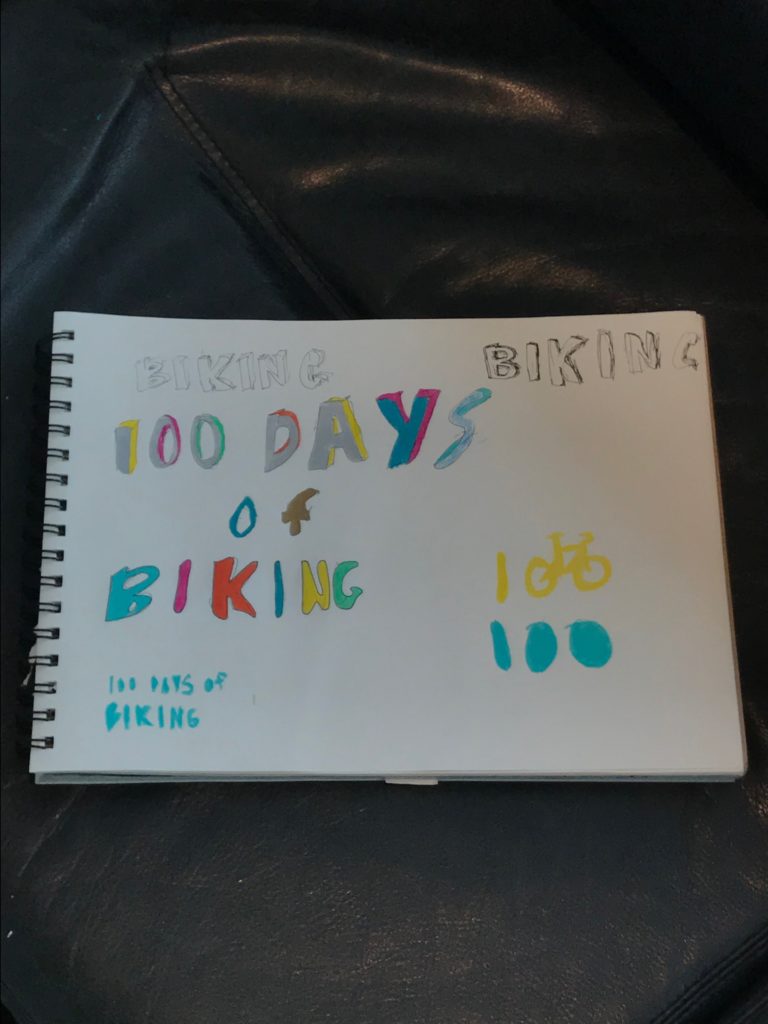 BIKING BIKING
100 DAYS
Of
BIKING
100
100
100 DAYS Of
BIKING